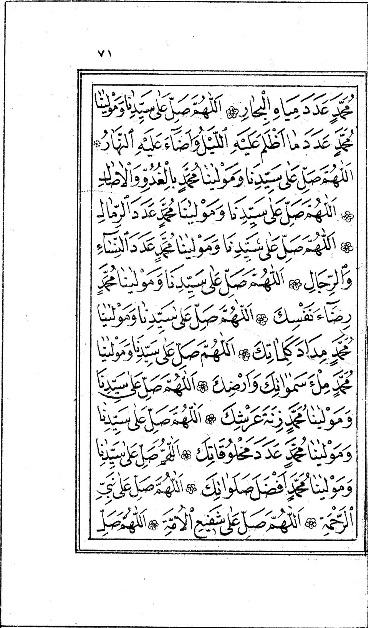 ٧١
مُحَمَّدٍ عَدَدَ مِيَاهِ الْبِحَارِ ❁ اَللّٰهُمَّ صَلِّ عَلٰى سَيِّدِنَا وَمَوْلٰينَا
مُحَمَّدٍ عَدَدَ مَا اَظْلَمَ عَلَيْهِ اللَّيْلُ وَاَضَٓاءَ عَلَيْهِ النَّهَارُ ❁
اَللّٰهُمَّ صَلِّ عَلٰى سَيِّدِنَا وَمَوْلٰينَا مُحَمَّدٍ بِالْغُدُوِّ وَالْاٰصَالِ
❁ اَللّٰهُمَّ صَلِّ عَلٰى سَيِّدِنَا وَمَوْلٰينَا مُحَمَّدٍ عَدَدَ الرِّمَالِ
❁ اَللّٰهُمَّ صَلِّ عَلٰى سَيِّدِنَا وَمَوْلٰينَا مُحَمَّدٍ عَدَدَ النِّسَٓاءِ
وَالرِّجَالِ ❁ اَللّٰهُمَّ صَلِّ عَلٰى سَيِّدِنَا وَمَوْلٰينَا مُحَمَّدٍ
رِضَٓاءَ نَفْسِكَ ❁ اَللّٰهُمَّ صَلِّ عَلٰى سَيِّدِنَا وَمَوْلٰينَا
مُحَمَّدٍ مِدَادَ كَلِمَاتِكَ ❁ اَللّٰهُمَّ صَلِّ عَلٰى سَيِّدِنَا وَمَوْلٰينَا
مُحَمَّدٍ مِلْءَ سَمٰوَاتِكَ وَاَرْضِكَ ❁ اَللّٰهُمَّ صَلِّ عَلٰى سَيِّدِنَا
وَمَوْلٰينَا مُحَمَّدٍ زِنَةَ عَرْشِكَ ❁ اَللّٰهُمَّ صَلِّ عَلٰى سَيِّدِنَا
وَمَوْلٰينَا مُحَمَّدٍ عَدَدَ مَخْلُوقَاتِكَ ❁ اَللّٰهُمَّ صَلِّ عَلٰى سَيِّدِنَا
وَمَوْلٰينَا مُحَمَّدٍ اَفْضَلَ صَلَوَاتِكَ ❁ اَللّٰهُمَّ صَلِّ عَلٰى نَبِيِّ
الرَّحْمَةِ ❁ اَللّٰهُمَّ صَلِّ عَلٰى شَفِيعِ الْاُمَّةِ ❁ اَللّٰهُمَّ صَلِّ